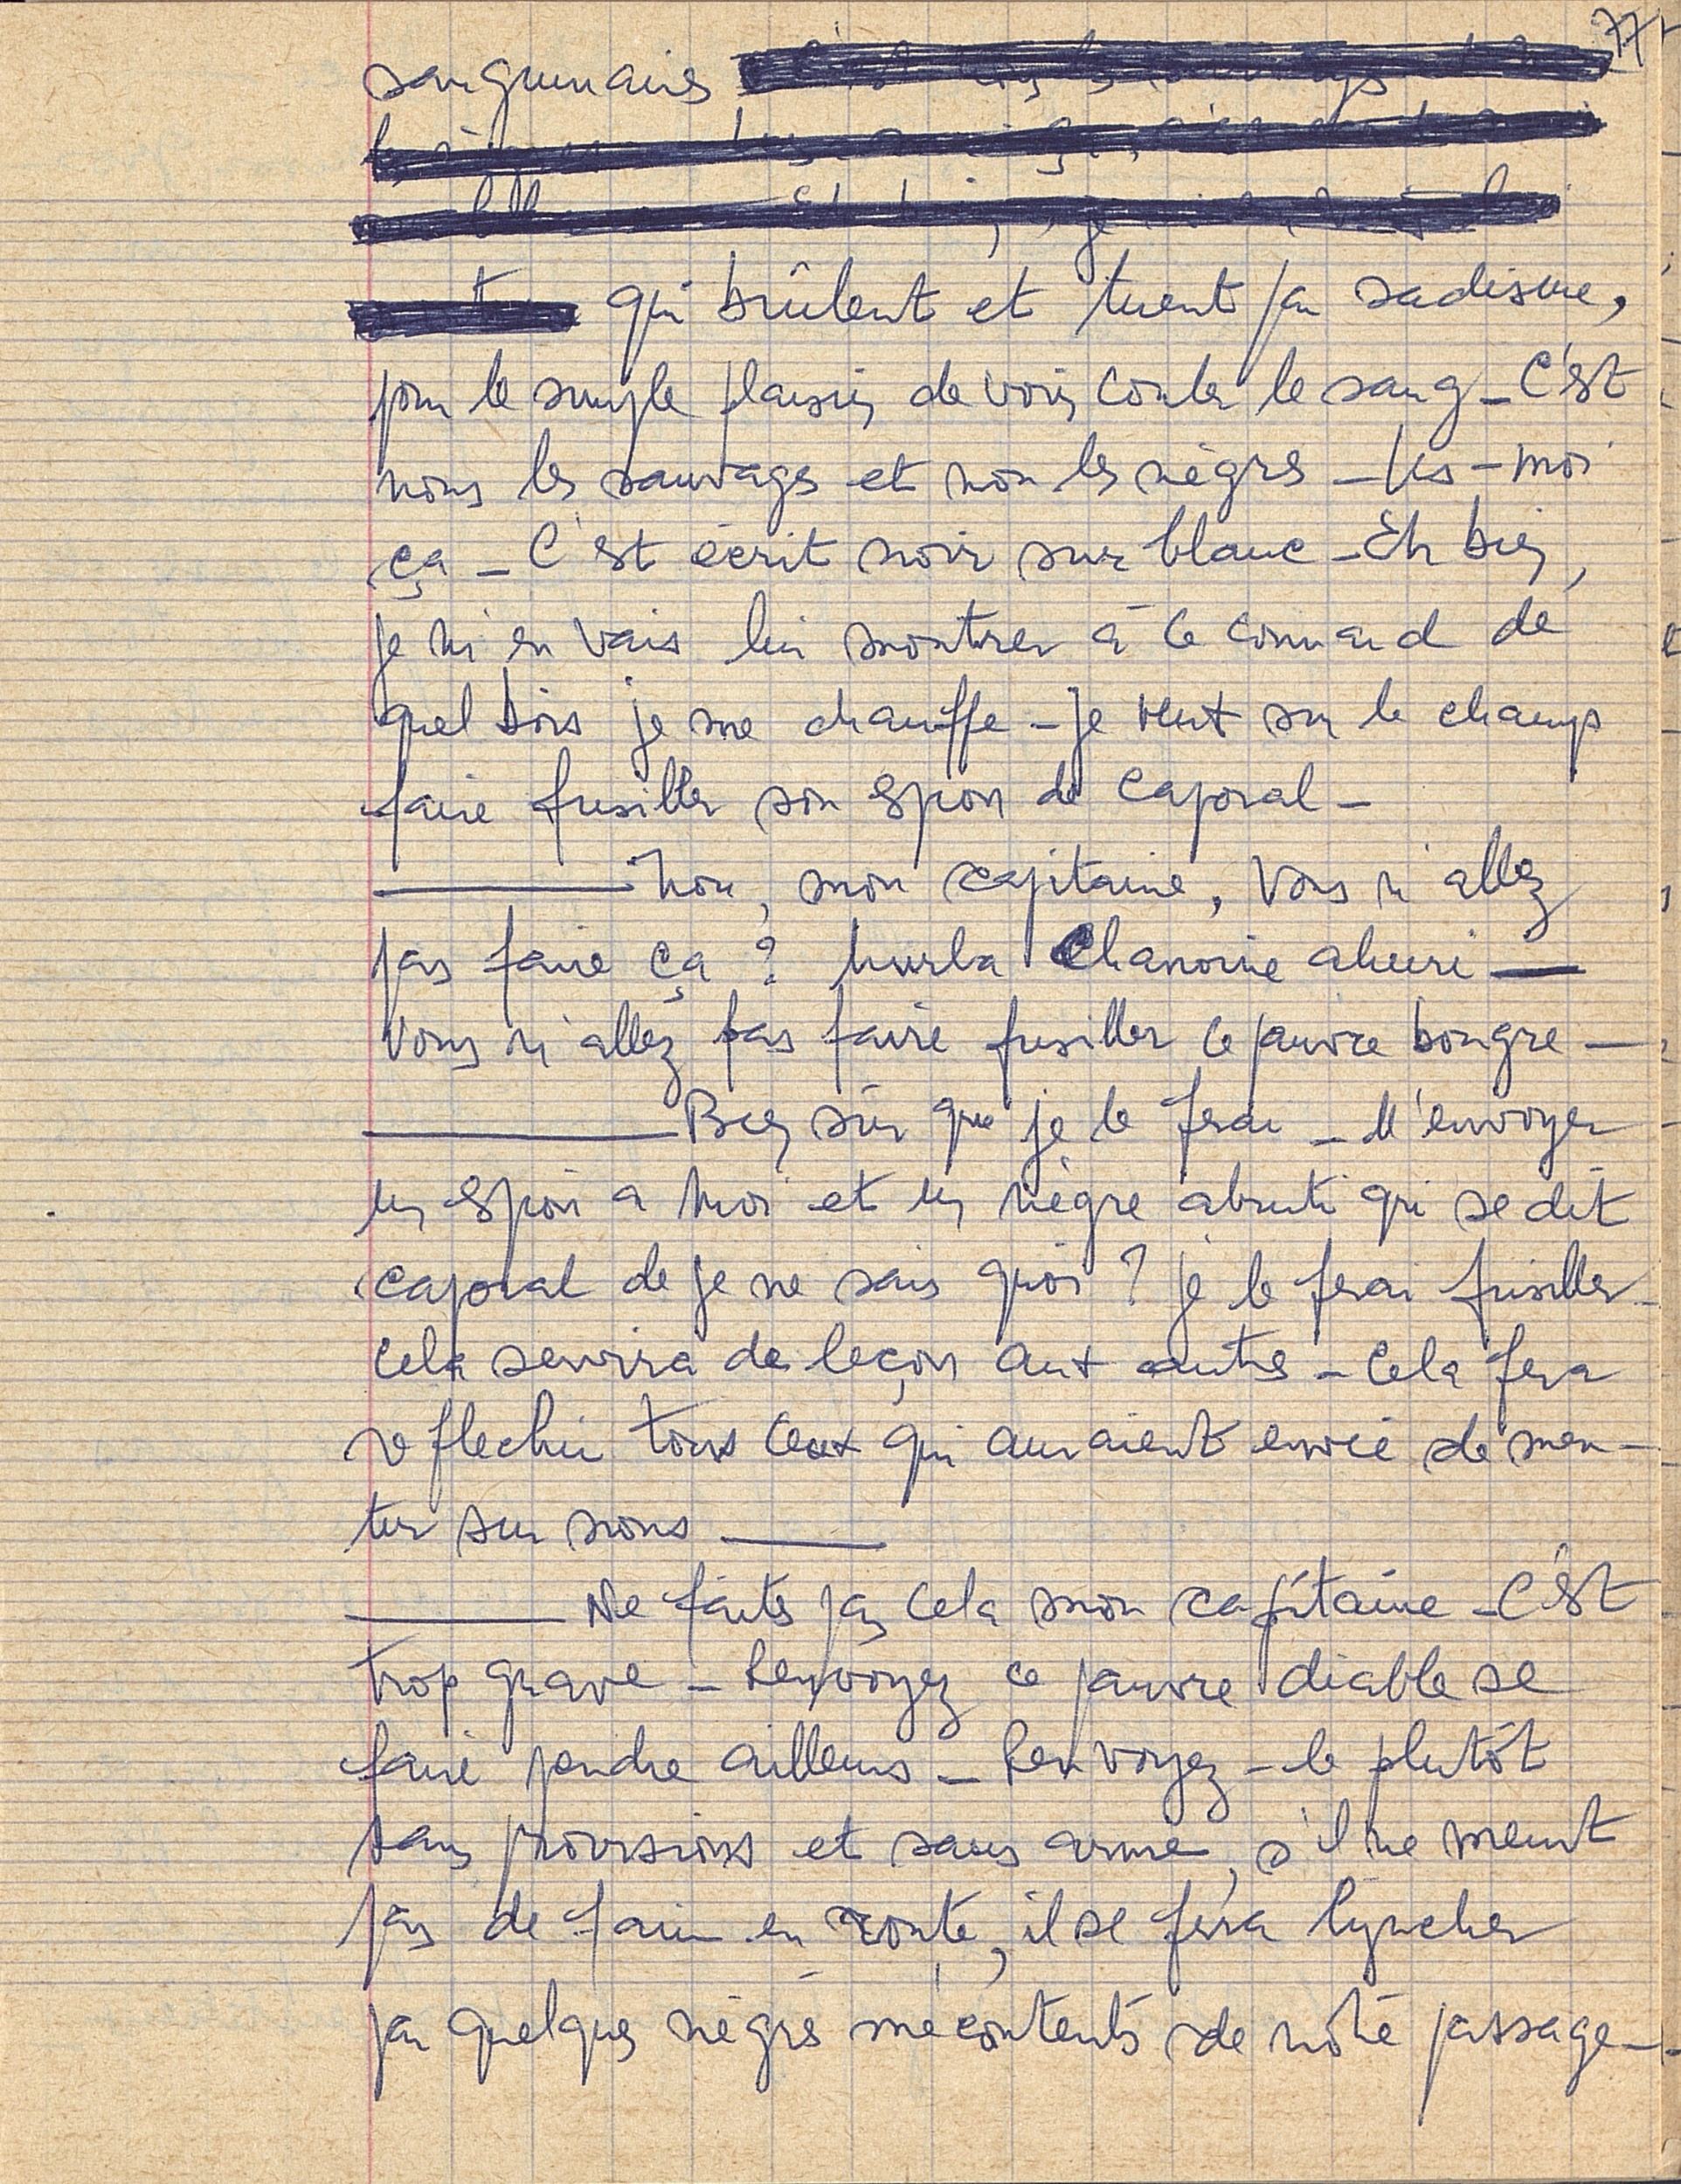 77
sanguinaires
qui brûlent et tuent par sadisme,
pour le simple plaisir de voir couler le sang – C'est
nous les sauvages et non les nègres – Lis-moi
ça – C'est écrit noir sur blanc – Eh bien,
je m'en vais lui montrer à ce connard de
quel bois je me chauffe – je veux sur le champ
faire fusiller son espion de caporal –
— Non, mon capitaine, vous n'allez
pas faire ça ? hurla Chanoine ahuri —
Vous n'allez pas faire fusiller ce pauvre bougre —
— Bien sûr que je le ferai – M'envoyer
un espion à moi et un nègre abruti qui se dit
caporal de je ne sais quoi ? je le ferai fusiller –
cela servira de leçon aux autres – Cela fera
reflechir tous ceux qui auraient envie de men-
tir sur nous —
— Ne faites pas cela mon capitaine – C'est
trop grave – Renvoyez ce pauvre diable se
faire pendre ailleurs – Renvoyez-le plutôt
sans provisions et sans arme, s'il ne meurt
pas de faim en route, il se fera lyncher
par quelques nègres mécontents de nôtre passage –